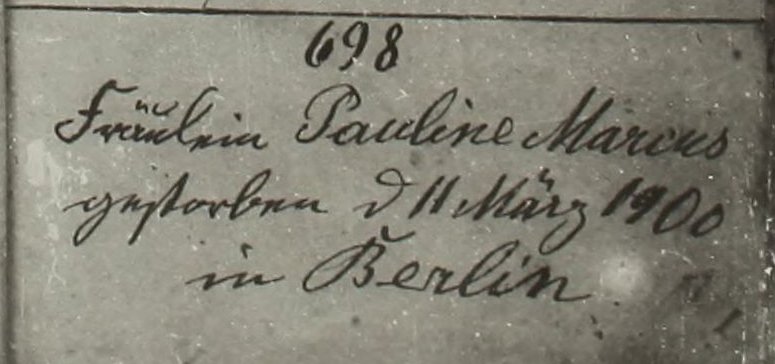 698
Fräulein Pauline Marcus
gestorben d 11 März 1900
in Berlin